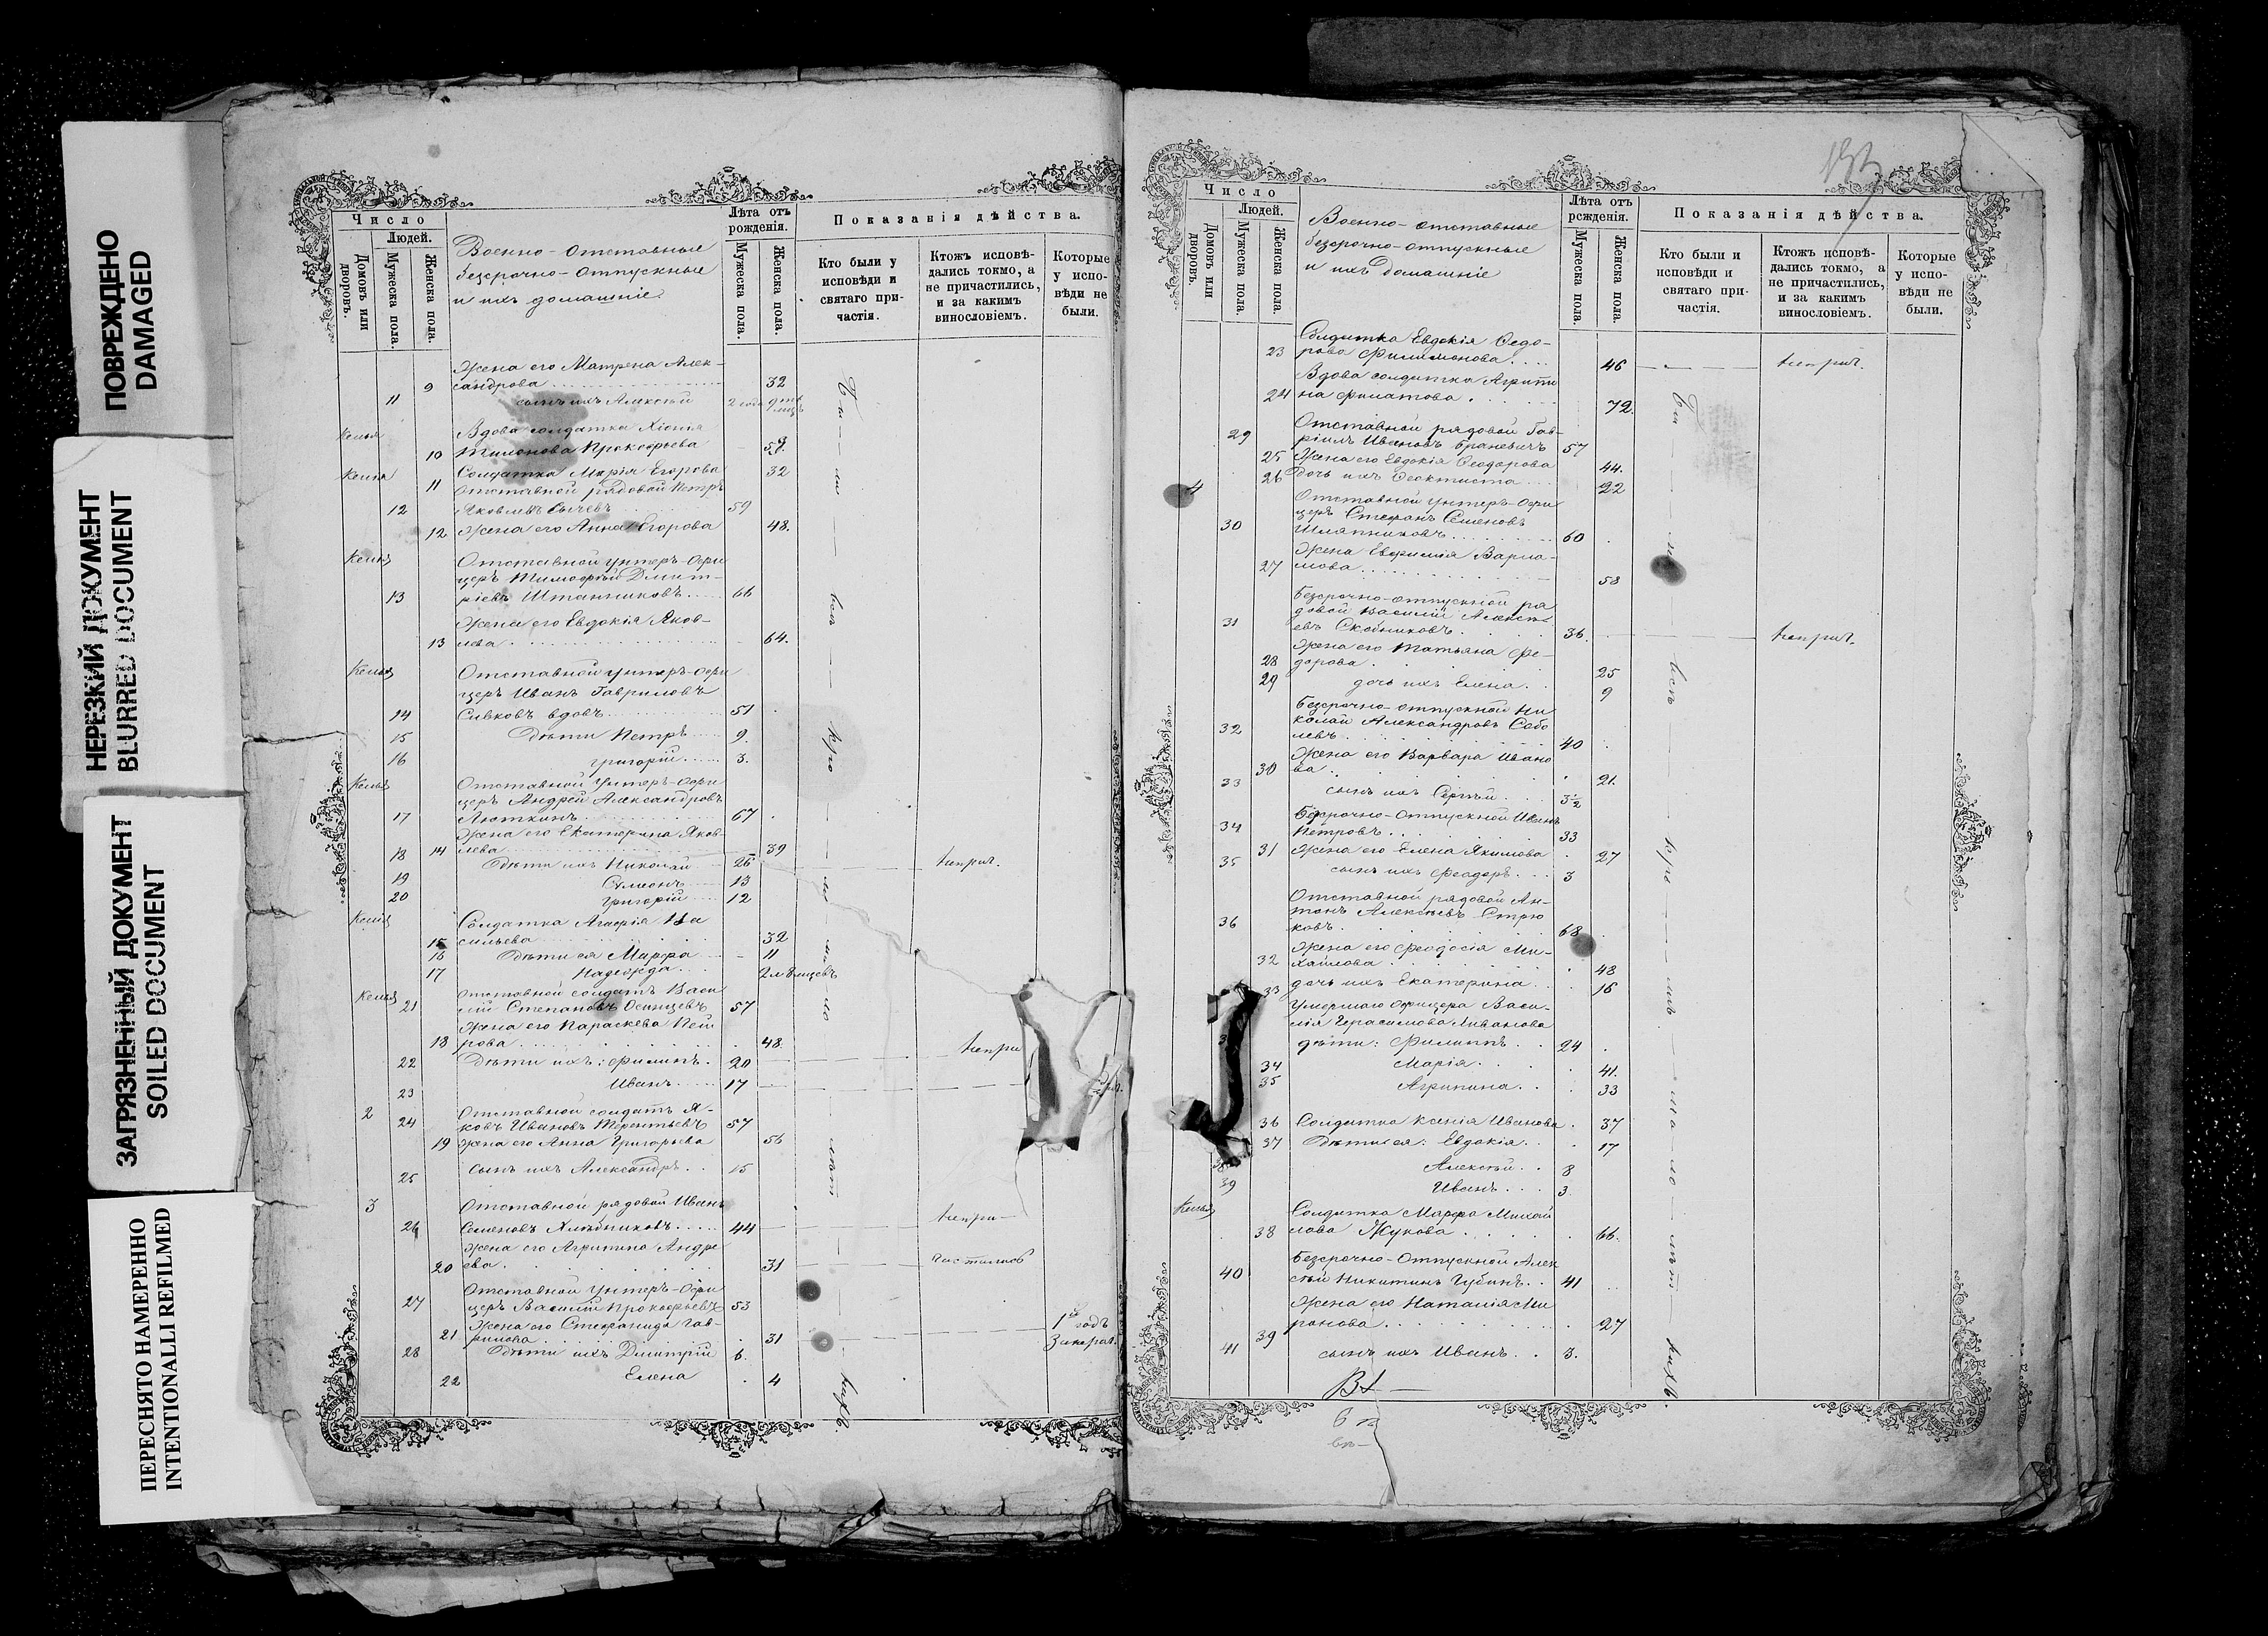 ПОВРЕЖДЕНО
DAMAGED
НЕРЕЗКИЙ ДОКУМЕНТ
BLURRED DOCUMENT
ЗАГРЯЗНЕННЫЙ ДОКУМЕНТ
SOILED DOCUMENT
ПЕРЕСНЯТО НАМЕРЕННО
INTENTIONALLI REFILMED
Число
Людей.
Домовъ или дворовъ.
Мужеска пола.
Женска пола.
Военно-отставные
безсрочно-отпускные
и ихъ домашніе.
Лѣта отъ рожденія.
Мужеска пола.
Женска пола.
Показанія дѣйства.
Кто были у исповѣди и святаго причастія.
Ктожъ исповѣ-
дались токмо, а
не причастились,
и за какимъ
винословіемъ.
Которые
у испо-
вѣди не
были.
Жена его Матрена Алек-
9 сандрова 32
11 сынъ ихъ Алексѣй 2 года
Келья Вдова солдатка Хіонія
10 Прокофьева
Келья Солдатка Марія Егорова 32
11 Отставной рядовой Петръ
12 Яковлевъ Сычевъ 59
12 Жена его Анна Егорова 48.
Келья Отставной унтеръ-офи
церъ Тимофѣй Дмит-
13 ріевъ Штанниковъ 66
Жена его Евдокія Яков-
13 лева 64.
Келья Отставной унтеръ-офи
церъ Иванъ Гавриловъ
14 Сивковъ вдовъ 51
15 Дѣти Петръ 9.
16 Григорій 3.
Келья Отставной унтеръ-офи
церъ Андрей Александровъ
17 Люткинъ 67
Жена его Екатерина Яков
14 лева 39
18 Дѣти ихъ Николай 26 неприч.
19 Симеонъ 13
20 Григорій 12
Келья Солдатка Агафія Ва
15 сильева 32
16 Дѣти ея Марфа 11
17 Надежда
Келья Отставной солдатъ Васи
21 лій Степановъ Осинцевъ 57
Жена его Параскева Пет
18 рова 48.
22 Дѣти ихъ: Филипъ. 20 непри
23 Иванъ 17
2 Отставной солдатъ Я-
24 ковъ Ивановъ Терентьевъ 57
19 Жена его Анна Григорьева 56
25 сынъ ихъ Александръ 15
3 Отставной рядовой Иванъ
26 Семеновъ Хлѣбниковъ 44 непри-
Жена его Агрипина Андре
20 ева 31 частились
Отставной унтеръ-офи
27 церъ Василій Прокофьевъ 53
Жена его Стефанида Гав-
21 рилова 31
28 Дѣти ихъ Дмитрій 6.
22 Елена 4
Число
Людей.
Домовъ или дворовъ.
Мужеска пола.
Женска пола.
Военно-отставные
безсрочно-отпускные
и ихъ домашніе
Лѣта отъ рожденія.
Мужеска пола.
Женска пола.
Показанія дѣйства.
Кто были и
исповѣди и
святаго при-
частія.
Ктожъ исповѣ-
дались токмо, а
не причастились,
и за какимъ
винословіемъ.
Которые
у испо-
вѣди не
были.
Солдатка Евдокія Ѳедо-
23 рова Филимонова 46 неприч.
Вдова солдатка Агрипи
24 на Филатова 72.
Отставной рядовой Гав-
29 ріилъ Ивановъ 57
25 Жена его Евдокія Ѳеодорова 44.
4 26 Дочь ихъ Ѳеоктиста 22
Отставной унтеръ-офи
церъ Стефанъ Семеновъ
30 Шляпниковъ 60
Жена Евфимія Варла-
27 мова 58
Безсрочно-отпускной ря
довой Василій Алексѣ-
31 евъ Скобниковъ 36. неприч.
Жена его Татьяна Ѳе-
28 дорова 25
29 дочь ихъ Елена 9
Безсрочно-отпускной Ни
колай Александровъ Собо
32 левъ 40
Жена его Варвара Ивано
30 ва 21.
33 сынъ ихъ Сергѣй 3½
Безсрочно-отпускной Иванъ
34 Петровъ 33
31 Жена его Елена Якимова 27
35 сынъ ихъ Ѳеодоръ 3
Отставной рядовой Ан-
тонъ Алексѣевъ Стрю
36 ковъ 68
Жена его Ѳеодосія Ми-
32 хайлова 48
33 дочь ихъ Екатерина 16
Умершаго офицера Васи-
лія Герасимова Ливанова
дѣти: Филиппъ 24
34 Марія 41.
35 Агрипина 33
36 Солдатка Ксенія Иванова 37
37 Дѣти ея: Евдокія 17
Алексѣй 8
39 Иванъ 3.
Келья Солдатка Марфа Михай
38 лова Жукова 66.
Безсрочно-отпускной Алек
40 сѣй Никитинъ Губинъ 41
Жена его Наталія Ми
39 ронова 27
41 сынъ ихъ Иванъ 3.